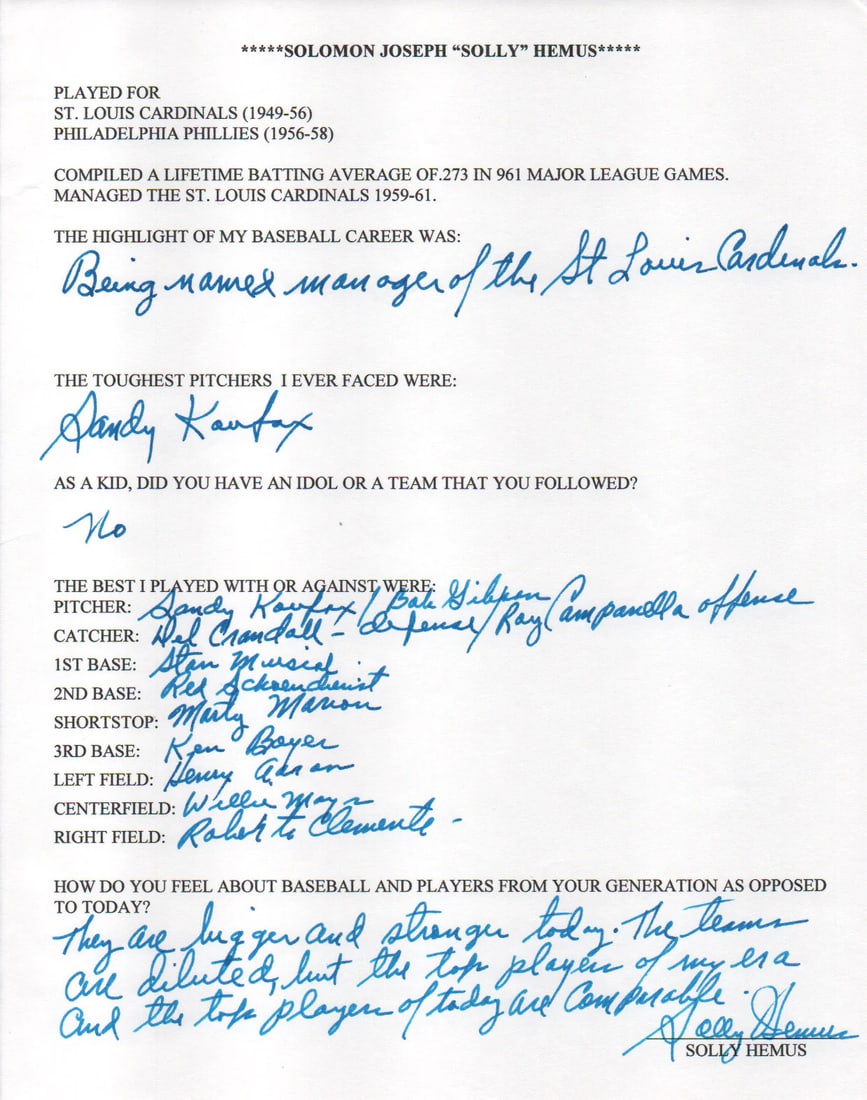 *****SOLOMON JOSEPH “SOLLY” HEMUS*****
PLAYED FOR
ST. LOUIS CARDINALS (1949-56)
PHILADELPHIA PHILLIES (1956-58)
COMPILED A LIFETIME BATTING AVERAGE OF.273 IN 961 MAJOR LEAGUE GAMES.
MANAGED THE ST. LOUIS CARDINALS 1959-61.
THE HIGHLIGHT OF MY BASEBALL CAREER WAS:
Being named manager of the St Louis Cardinals.
THE TOUGHEST PITCHERS I EVER FACED WERE:
Sandy Koufax
AS A KID, DID YOU HAVE AN IDOL OR A TEAM THAT YOU FOLLOWED?
No
THE BEST I PLAYED WITH OR AGAINST WERE:
PITCHER: Sandy Koufax / Bob Gibson
CATCHER: Del Crandall - defense / Roy Campanella offense
1ST BASE: Stan Musial
2ND BASE: Red Schoendienst
SHORTSTOP: Marty Marion
3RD BASE: Ken Boyer
LEFT FIELD: Henry Aaron
CENTERFIELD: Willie Mays
RIGHT FIELD: Roberto Clemente -
HOW DO YOU FEEL ABOUT BASEBALL AND PLAYERS FROM YOUR GENERATION AS OPPOSED
TO TODAY?
They are bigger and stronger today. The teams
are diluted, but the top players of my era
and the top players of today are comparable.
Solly Hemus
SOLLY HEMUS